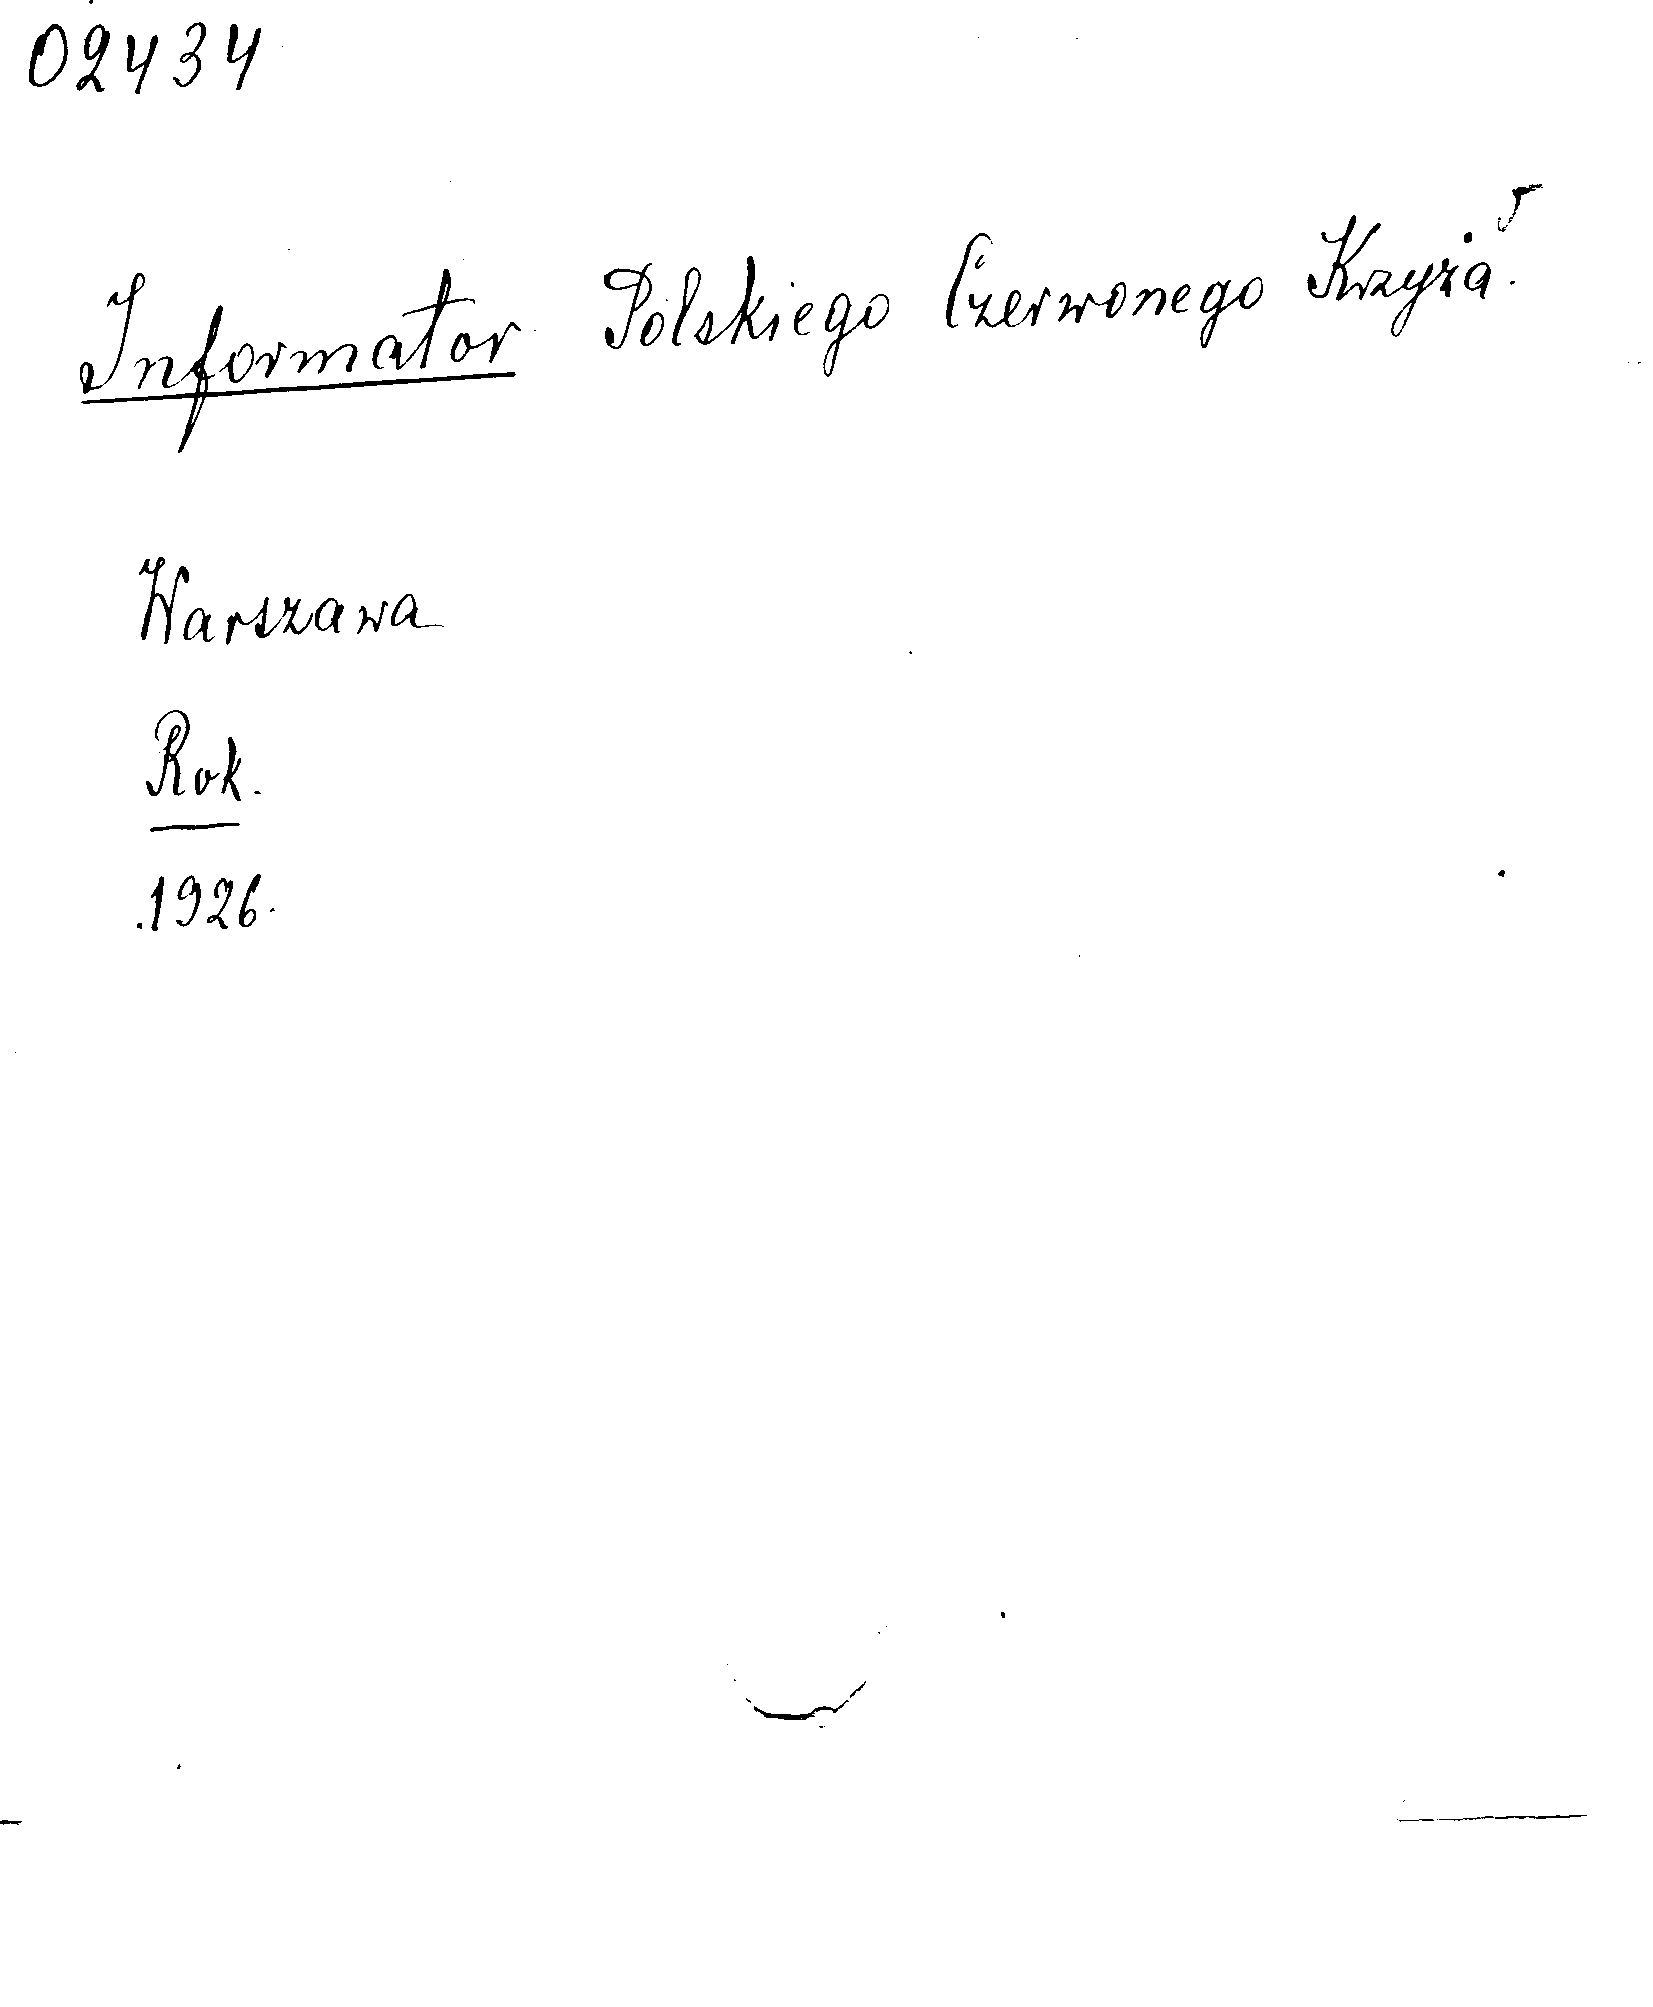 02434
Informator Polskiego Czerwonego Krzyża.
Warszawa
Rok.
1926.